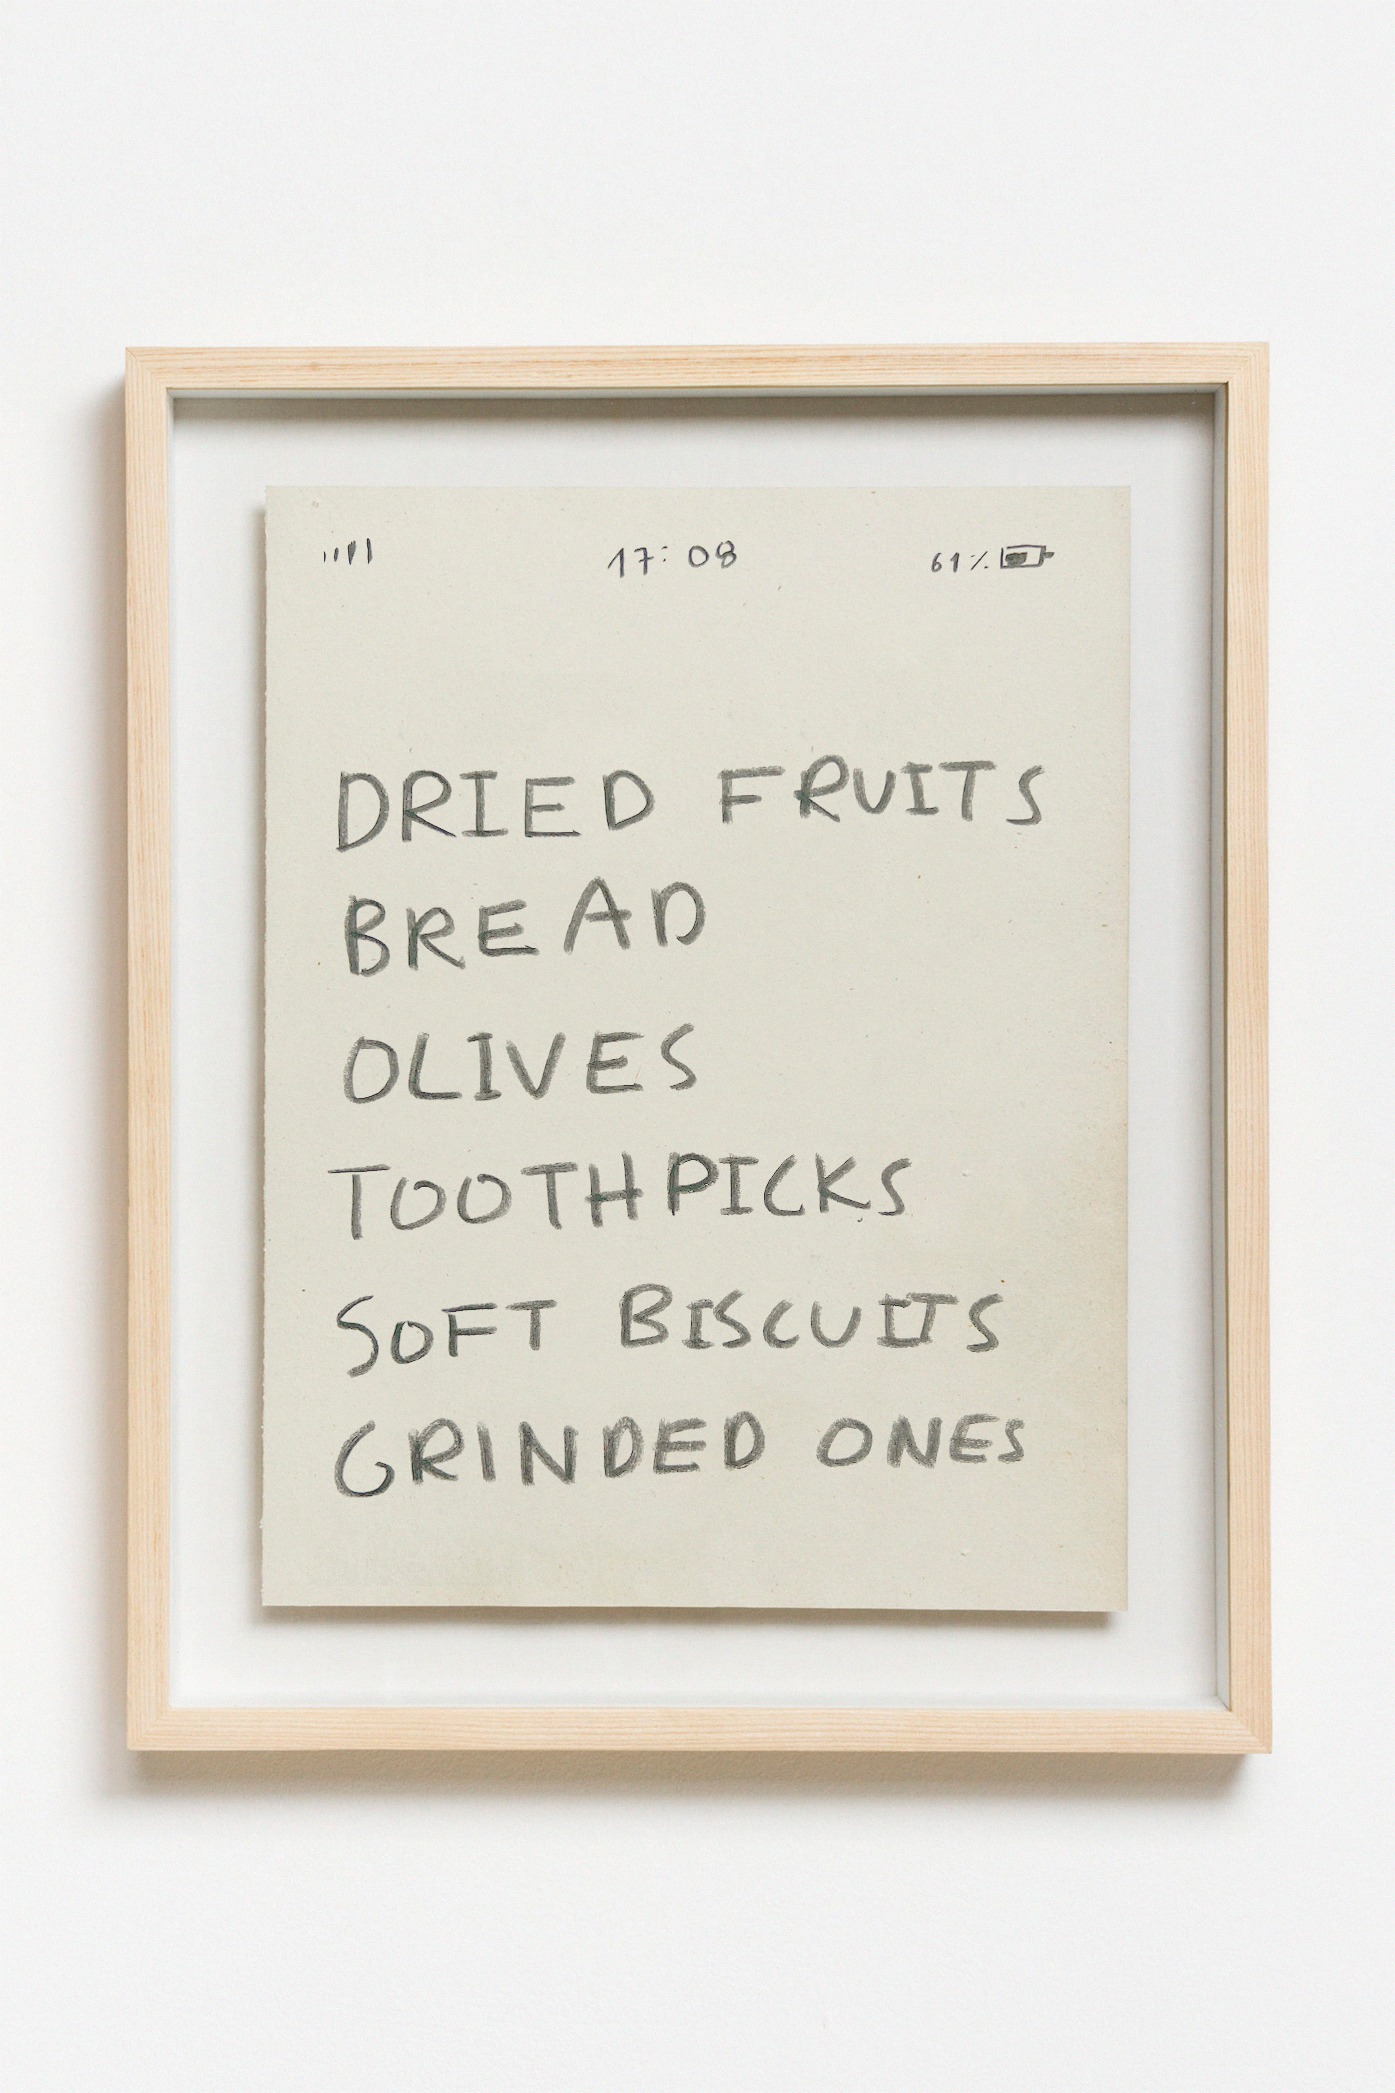 17:08 61%
DRIED FRUITS
BREAD
OLIVES
TOOTHPICKS
SOFT BISCUITS
GRINDED ONES